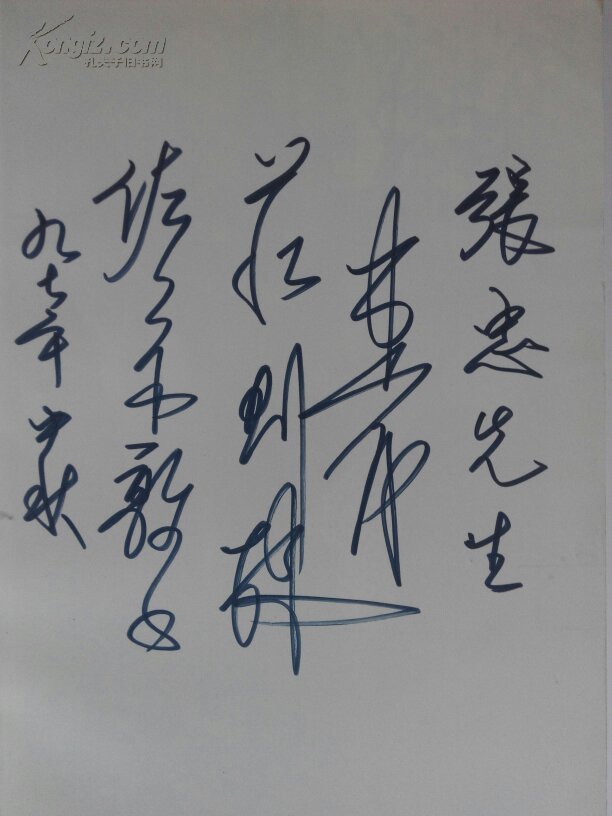 張忠先生
惠存
莊则棟
佐々木敦子
九七年中秋
Kongfz.com
孔夫子旧书网